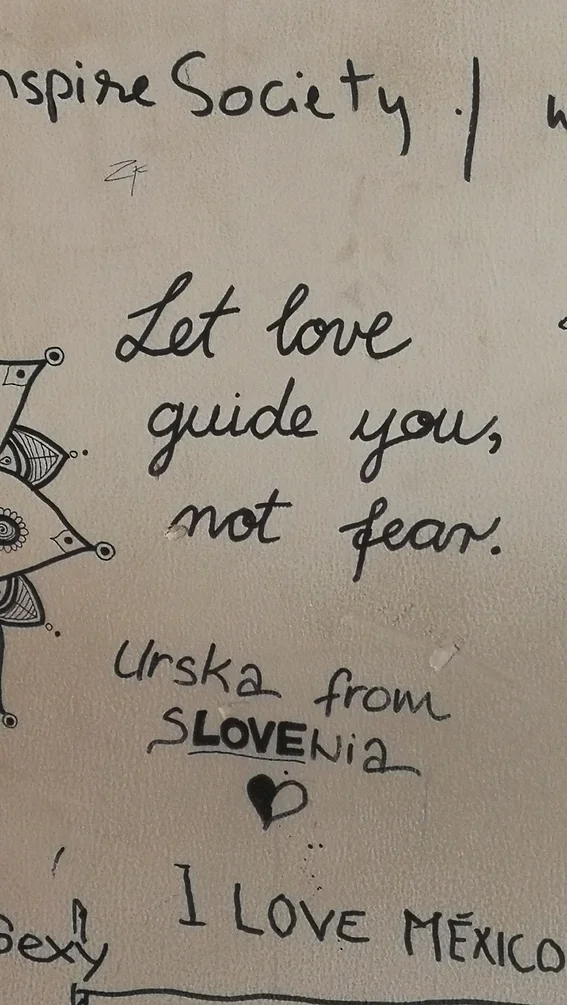 nspire Society.
ZK
Let love
guide you,
not fear.
Urska from
SLOVENia
I LOVE MÉXICO
Sexy